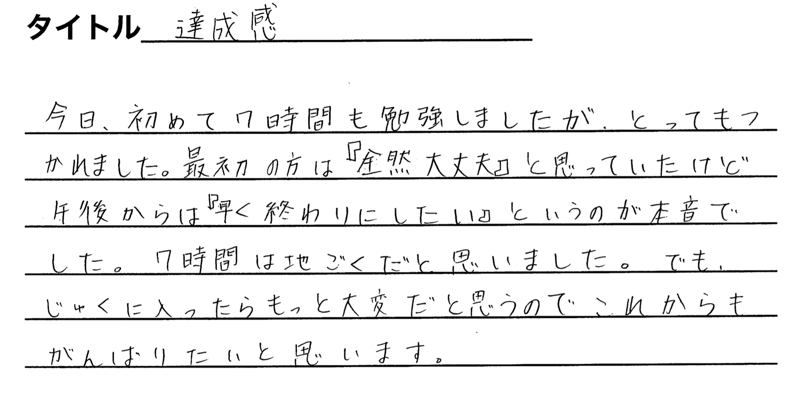 タイトル 達成感
今日、初めて7時間も勉強しましたが、とってもつ
かれました。最初の方は『全然大丈夫』と思っていたけど
午後からは『早く終わりにしたい』というのが本音で
した。7時間は地ごくだと思いました。でも、
じゅくに入ったらもっと大変だと思うのでこれからも
がんばりたいと思います。